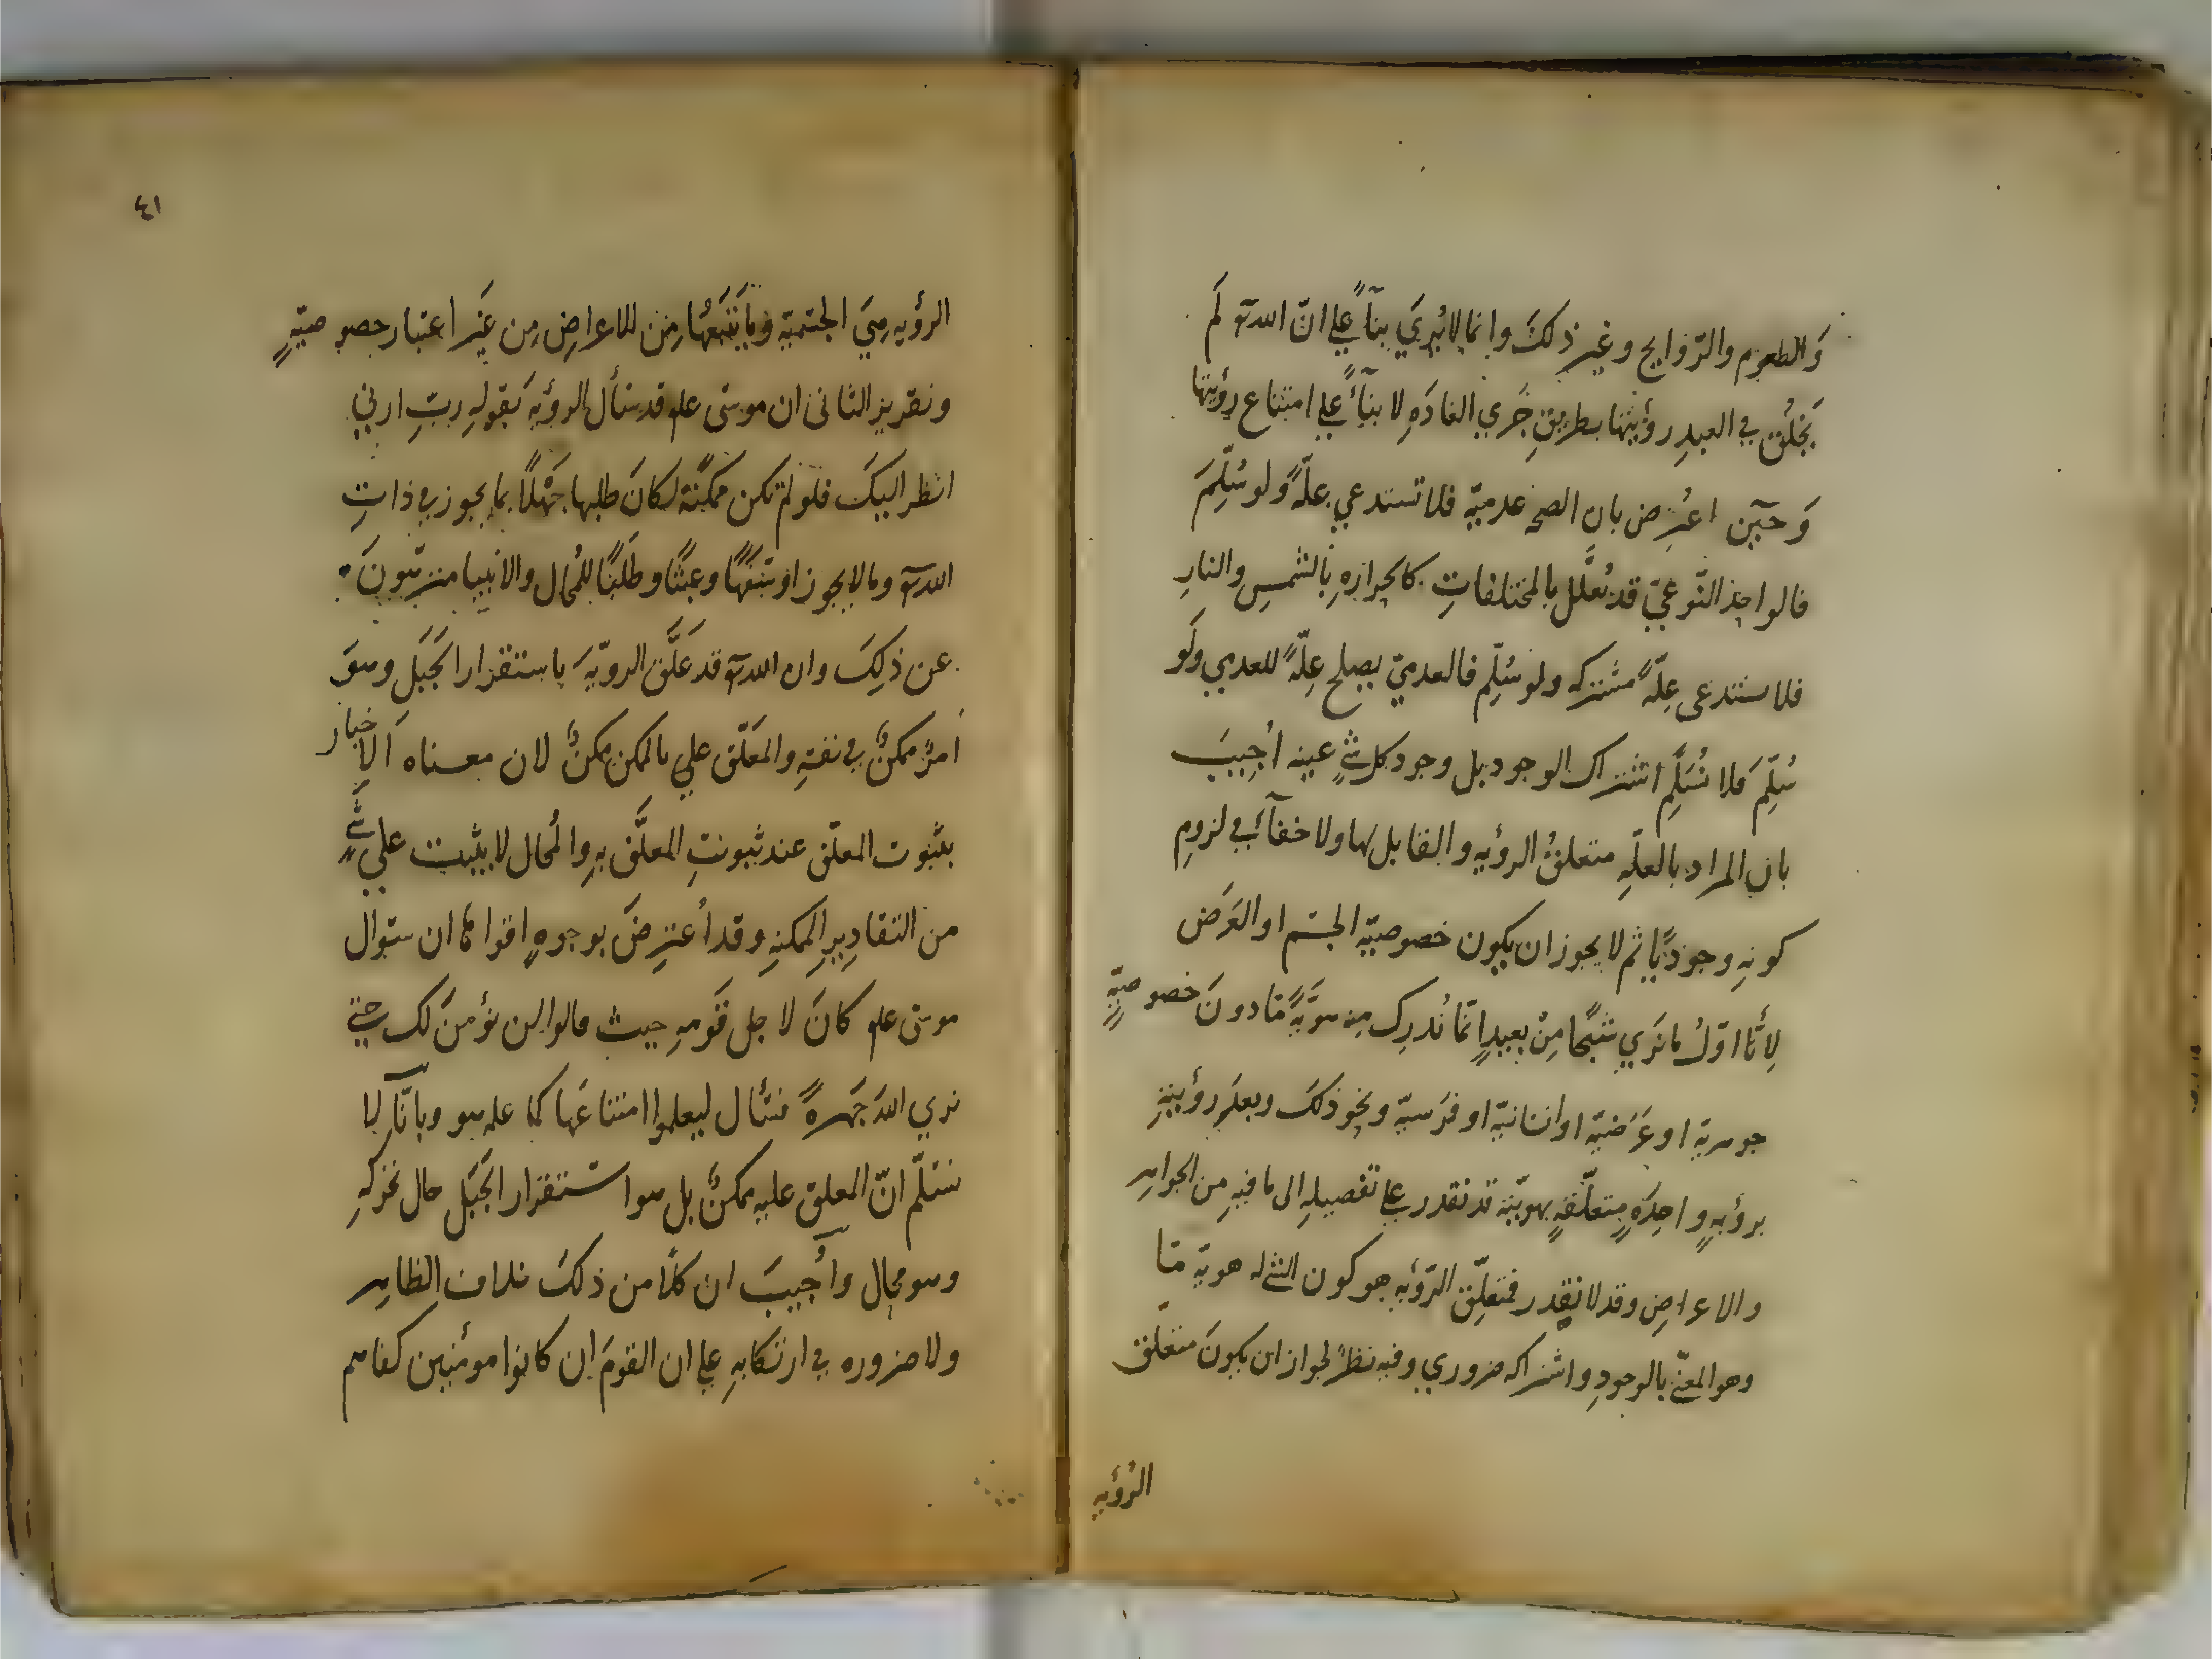 وَالطعوم والرّوايح وغير ذلكَ وانما لا يُرَي بنآءً علي انّ الله تع لَم
يَخلُق في العبدِ رؤيتها بطريقِ جَري العادَهِ لا بنآءً علي امتناع رؤيتها
وَحين اعتُرِض بان الصحه عدميّة فلا تستدعي علّهً ولو سُلِّمَ
فالواحد النّوعيّ قد يُعَلَّل بالمختلفاتِ كالحرارةِ بالشمسِ والنارِ
فلا ستدعى عِلّهً مشتركه ولو سُلِّم فالعدميّ يصلح عِلّهً للعدمي ولَو
سُلِّمَ فلا نُسَلِّم اشتراك الوجود بل وجود كل شيٍ عينه اُجِيبَ
بان المراد بالعلّهِ متعلقُ الرؤيه والقابل لها ولا خفآءَ في لزومِ
كونهِ وجوديًّا ثم لا يجوز ان يكون خصوصيّة الجسم او العَرَض
لِأنّا اوّلُ ما نَري شَبَحًا مِنْ بعيدٍ انّما نُدرِك منه هوَيّةً مّا دونَ خصوصيّةٍ
جوهرية او عَرَضيّة او انسانيّة او فرَسيّة ونحو ذلكَ وبعدَ رؤيتهِ
برؤيهٍ واحِدَهٍ متعلّقهٍ بهويّته قد نقدر علي تفصيلهِ الى ما فيهِ من الجواهر
والاعراضِ وقد لا نقدر فمتعلِّق الرّؤيه هو كون الشي له هوية مّا
وهو المعنّي بالوجودِ واشتراكه ضروري وفيه نظرٌ لجواز ان يكونَ متعلق
الرُؤيه
٤١
الرؤيه هيَ الجسميّة وما يَتبَعُها من الاعراضِ مِن غَير اعتبار خصوصيّةٍ
وتقرير الثانى ان موسى علم قد سأل الرؤيه بَقولهِ ربّ ارني
انظر اليكَ فلو لم تكن ممكنَة لكانَ طلبها جَهلًا بما يجوز في ذاتِ
الله تع وما لا يجوز او سَفَهًا وعبثًا وطَلَبًا للمُحال والانبيا منزّهونَ
عن ذلِكَ وان الله تع قد عَلَّق الرويّهَ باستقرار الجَبَلِ وهوَ
امرٌ ممكنٌ في نفسهِ والمعَلّق علي الممكن ممكنٌ لان معناه الاخبار
بثبوت المعلّق عند ثبوتِ المعلَّق بهِ والمُحال لا يثبت علي شيٍ
من التقاديرِ الممكنهِ وقد اُعترِضَ بوجوهٍ اقواها ان سؤال
موسى علم كانَ لاجل قَومهِ حيث قالوا لن نؤمنَ لك حتي
نري اللهَ جَهرهً فسئال ليعلموا امتناعَها كما علمه هو وبانّا لا
نسَلّم انّ المعلق عليه ممكنٌ بل هو استقرار الجَبَل حال تحركهِ
وهو محال وأُجيبَ ان كلًّا من ذلكَ خلاف الظاهر
ولا ضروره في ارتكابهِ علي ان القومَ ان كانوا مؤمنين كفاهم